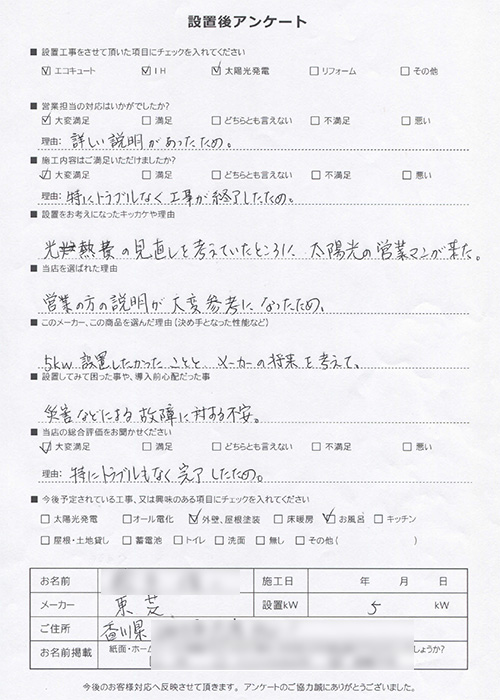 設置後アンケート
■ 設置工事をさせて頂いた項目にチェックを入れてください
☑ エコキュート ☑ IH ☑ 太陽光発電 □ リフォーム □ その他
■ 営業担当の対応はいかがでしたか?
☑ 大変満足 □ 満足 □ どちらとも言えない □ 不満足 □ 悪い
理由: 詳しい説明があったため。
■ 施工内容はご満足いただけましたか?
☑ 大変満足 □ 満足 □ どちらとも言えない □ 不満足 □ 悪い
理由: 特にトラブルなく工事が終了したため。
■ 設置をお考えになったキッカケや理由
光熱費の見直しを考えていたところに 太陽光の営業マンが来た。
■ 当店を選ばれた理由
営業の方の説明が大変参考になったため。
■ このメーカー、この商品を選んだ理由(決め手となった性能など)
5kw 設置したかったことと、メーカーの将来を考えて。
■ 設置してみて困った事や、導入前心配だった事
災害などによる故障に対する不安。
■ 当店の総合評価をお聞かせください
☑ 大変満足 □ 満足 □ どちらとも言えない □ 不満足 □ 悪い
理由: 特にトラブルもなく完了したため。
■ 今後予定されている工事、又は興味のある項目にチェックを入れてください
□ 太陽光発電 □ オール電化 ☑ 外壁、屋根塗装 □ 床暖房 ☑ お風呂 □ キッチン
□ 屋根・土地貸し □ 蓄電池 □ トイレ □ 洗面 □ 無し □ その他( )
お名前 施工日 年 月 日
メーカー 東芝 設置kW 5 kW
ご住所 香川県
お名前掲載 紙面・ホーム しょうか?
今後のお客様対応へ反映させて頂きます。 アンケートのご協力誠にありがとうございました。